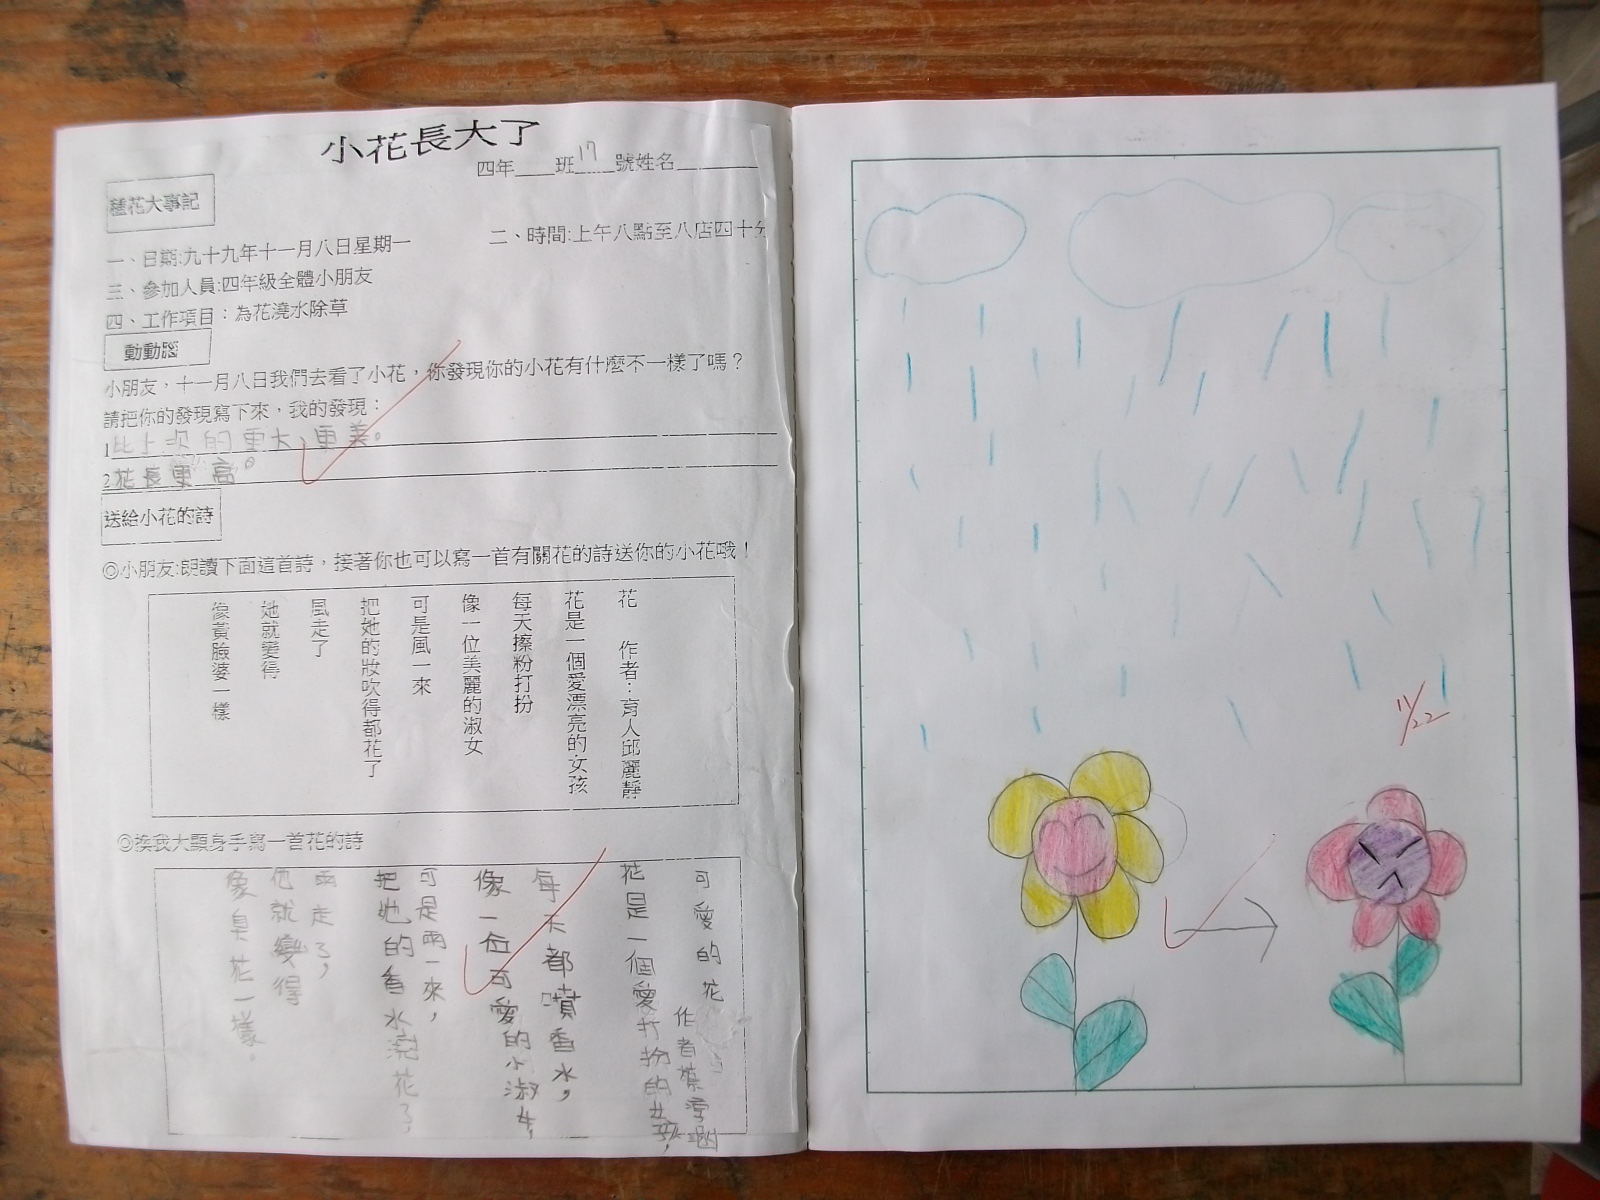 小花長大了
四年____班17號姓名______
種花大事記
一、日期:九十九年十一月八日星期一 二、時間:上午八點至八店四十分
三、參加人員:四年級全體小朋友
四、工作項目：為花澆水除草
動動腦
小朋友，十一月八日我們去看了小花，你發現你的小花有什麼不一樣了嗎？
請把你的發現寫下來，我的發現：
1比上次的更大、更美。
2花長更高。
送給小花的詩
◎小朋友:朗讀下面這首詩，接著你也可以寫一首有關花的詩送你的小花哦！
花 作者：育人邱麗靜
花是一個愛漂亮的女孩
每天擦粉打扮
像一位美麗的淑女
可是風一來
把她的妝吹得都花了
風走了
她就變得
像黃臉婆一樣
◎換我大顯身手寫一首花的詩
可愛的花
作者葉
花是一個愛打扮的女孩，
每天都噴香水，
像一位可愛的小淑女，
可是雨一來，
把她的香水澆花了，
雨走了，
他就變得
像臭花一樣。
11/22